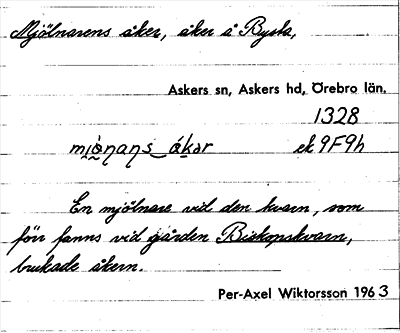 Mjölnarens åker, åker å Bysta,
Askers sn, Askers hd, Örebro län.
1328
mjönans åkar ek 9F9h
En mjölnare vid den kvarn, som
förr fanns vid gården Biskopskvarn,
brukade åkern.
Per-Axel Wiktorsson 1963